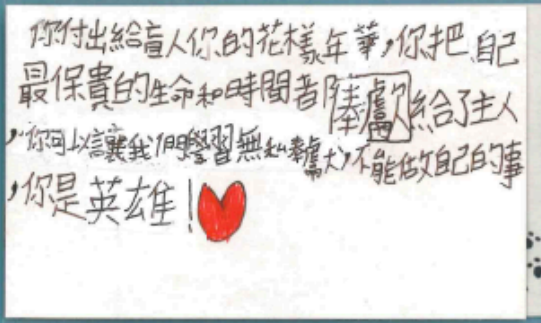 你付出給盲人你的花樣年華，你把自己
最保貴的生命和時間都奉獻給了主人
，你可以讓我們學習無私奉獻，不能做自己的事
，你是英雄！